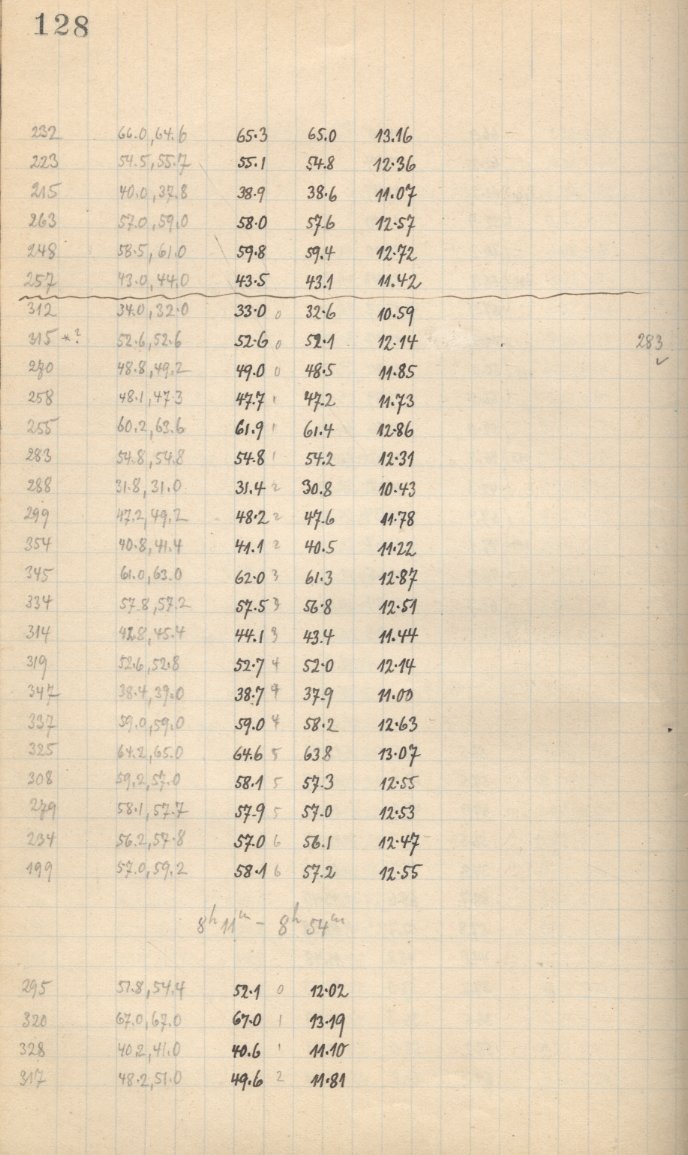 128
232 66.0, 64.6 65.3 65.0 13.16
223 54.5, 55.7 55.1 54.8 12.36
215 40.0, 37.8 38.9 38.6 11.07
263 57.0, 59.0 58.0 57.6 12.57
248 58.5, 61.0 59.8 59.4 12.72
257 43.0, 44.0 43.5 43.1 11.42
312 34.0, 32.0 33.0 0 32.6 10.59
315 *? 52.6, 52.6 52.6 0 52.1 12.14 283 ✓
270 48.8, 49.2 49.0 0 48.5 11.85
258 48.1, 47.3 47.7 1 47.2 11.73
255 60.2, 63.6 61.9 1 61.4 12.86
283 54.8, 54.8 54.8 1 54.2 12.31
288 31.8, 31.0 31.4 2 30.8 10.43
299 47.2, 49.2 48.2 2 47.6 11.78
354 40.8, 41.4 41.1 2 40.5 11.22
345 61.0, 63.0 62.0 3 61.3 12.87
334 57.8, 57.2 57.5 3 56.8 12.51
314 42.8, 45.4 44.1 3 43.4 11.44
319 52.6, 52.8 52.7 4 52.0 12.14
347 38.4, 39.0 38.7 4 37.9 11.00
337 59.0, 59.0 59.0 4 58.2 12.63
325 64.2, 65.0 64.6 5 63.8 13.07
308 59.2, 57.0 58.1 5 57.3 12.55
279 58.1, 57.7 57.9 5 57.0 12.53
234 56.2, 57.8 57.0 6 56.1 12.47
199 57.0, 59.2 58.1 6 57.2 12.55
8h 11m – 8h 54m
295 51.8, 54.4 52.1 0 12.02
320 67.0, 67.0 67.0 1 13.19
328 40.2, 41.0 40.6 1 11.10
317 48.2, 51.0 49.6 2 11.81